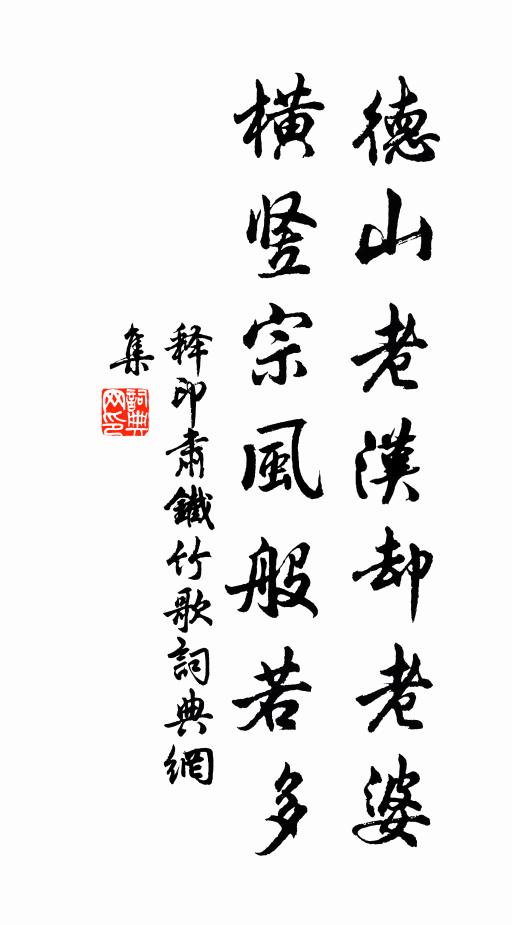 德山老漢却老婆
橫豎宗風般若多
释印肅鐵竹歌詞典網
集
詞典
网印